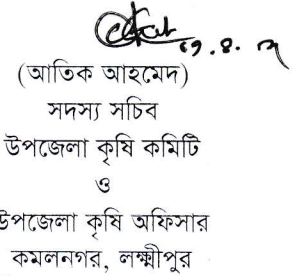 (আতিক আহমেদ)
সদস্য সচিব
উপজেলা কৃষি কমিটি
ও
উপজেলা কৃষি অফিসার
কমলনগর, লক্ষ্মীপুর